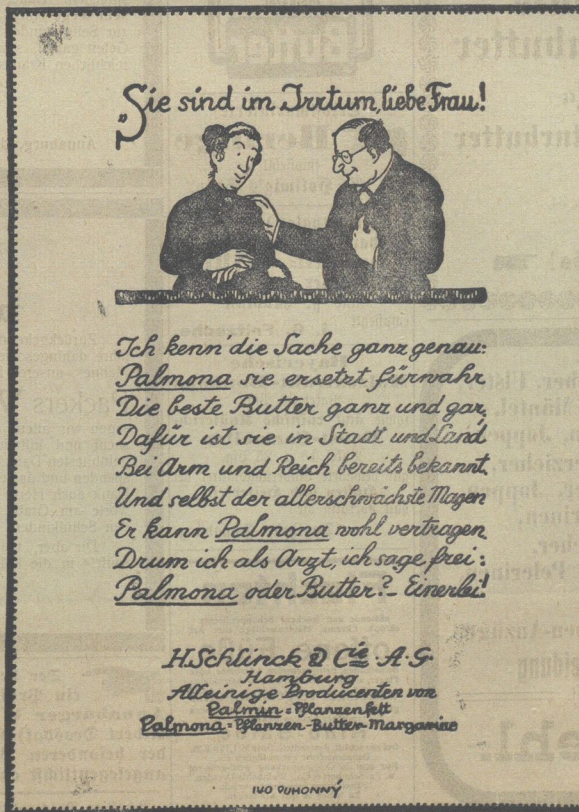 „Sie sind im Irrtum, liebe Frau!
Ich kenn' die Sache ganz genau:
Palmona sie ersetzt fürwahr
Die beste Butter ganz und gar,
Dafür ist sie in Stadt und Land
Bei Arm und Reich bereits bekannt,
Und selbst der allerschwächste Magen
Er kann Palmona wohl vertragen.
Drum ich als Arzt, ich sage frei:
Palmona oder Butter? – Einerlei!
H. Schlinck & Cie. A-G.
Hamburg
Alleinige Producenten von
Palmin = Pflanzenfett
Palmona = Pflanzen-Butter-Margarine
IVO PUHONNÝ